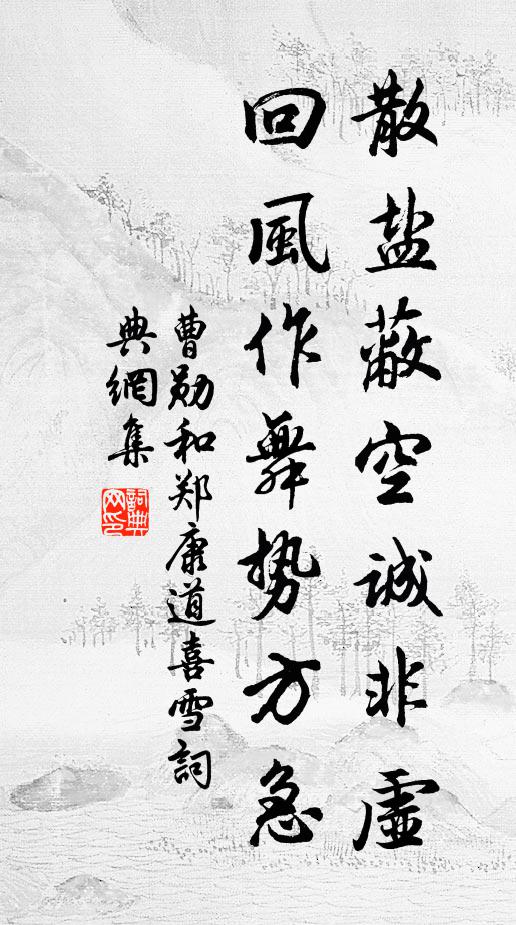 散盐蔽空诚非虚
回風作舞势方急
曹勋和郑康道喜雪詞
典網集
詞典
网印